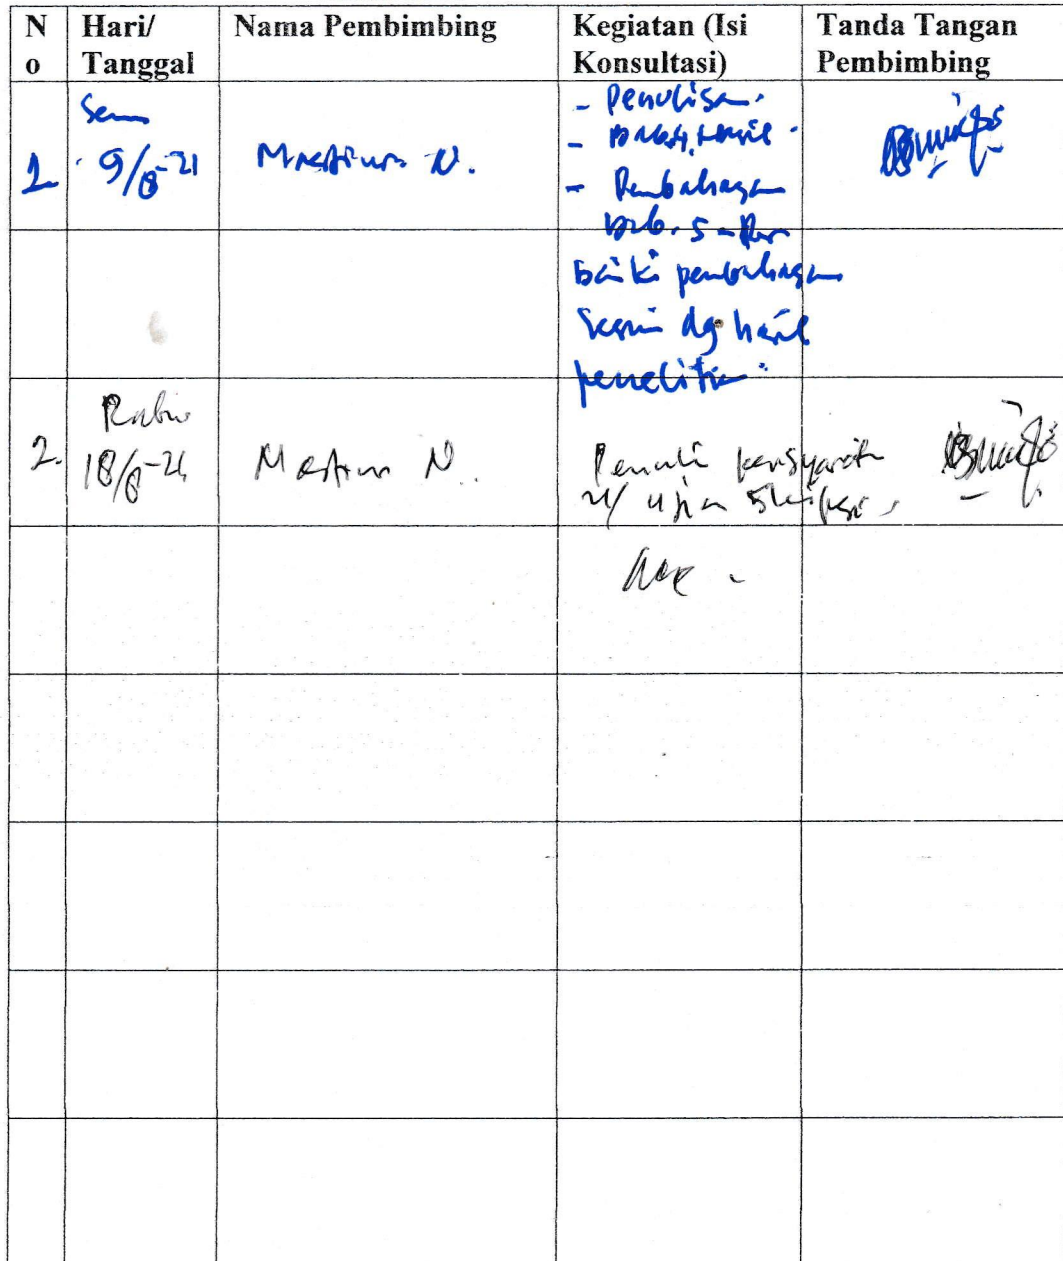 No
Hari/ Tanggal
Nama Pembimbing
Kegiatan (Isi Konsultasi)
Tanda Tangan Pembimbing
1
Sen
9/8-21
Mestiur N.
- Penulisan.
- Hasil.
- Pembahasan
bab. 5 - Per
baiki pembahasan
sesuai dg hasil
penelitian.
2.
Rabu
18/8-21
Mestiur N.
Penuhi persyaratan
u/ ujian Skripsi.